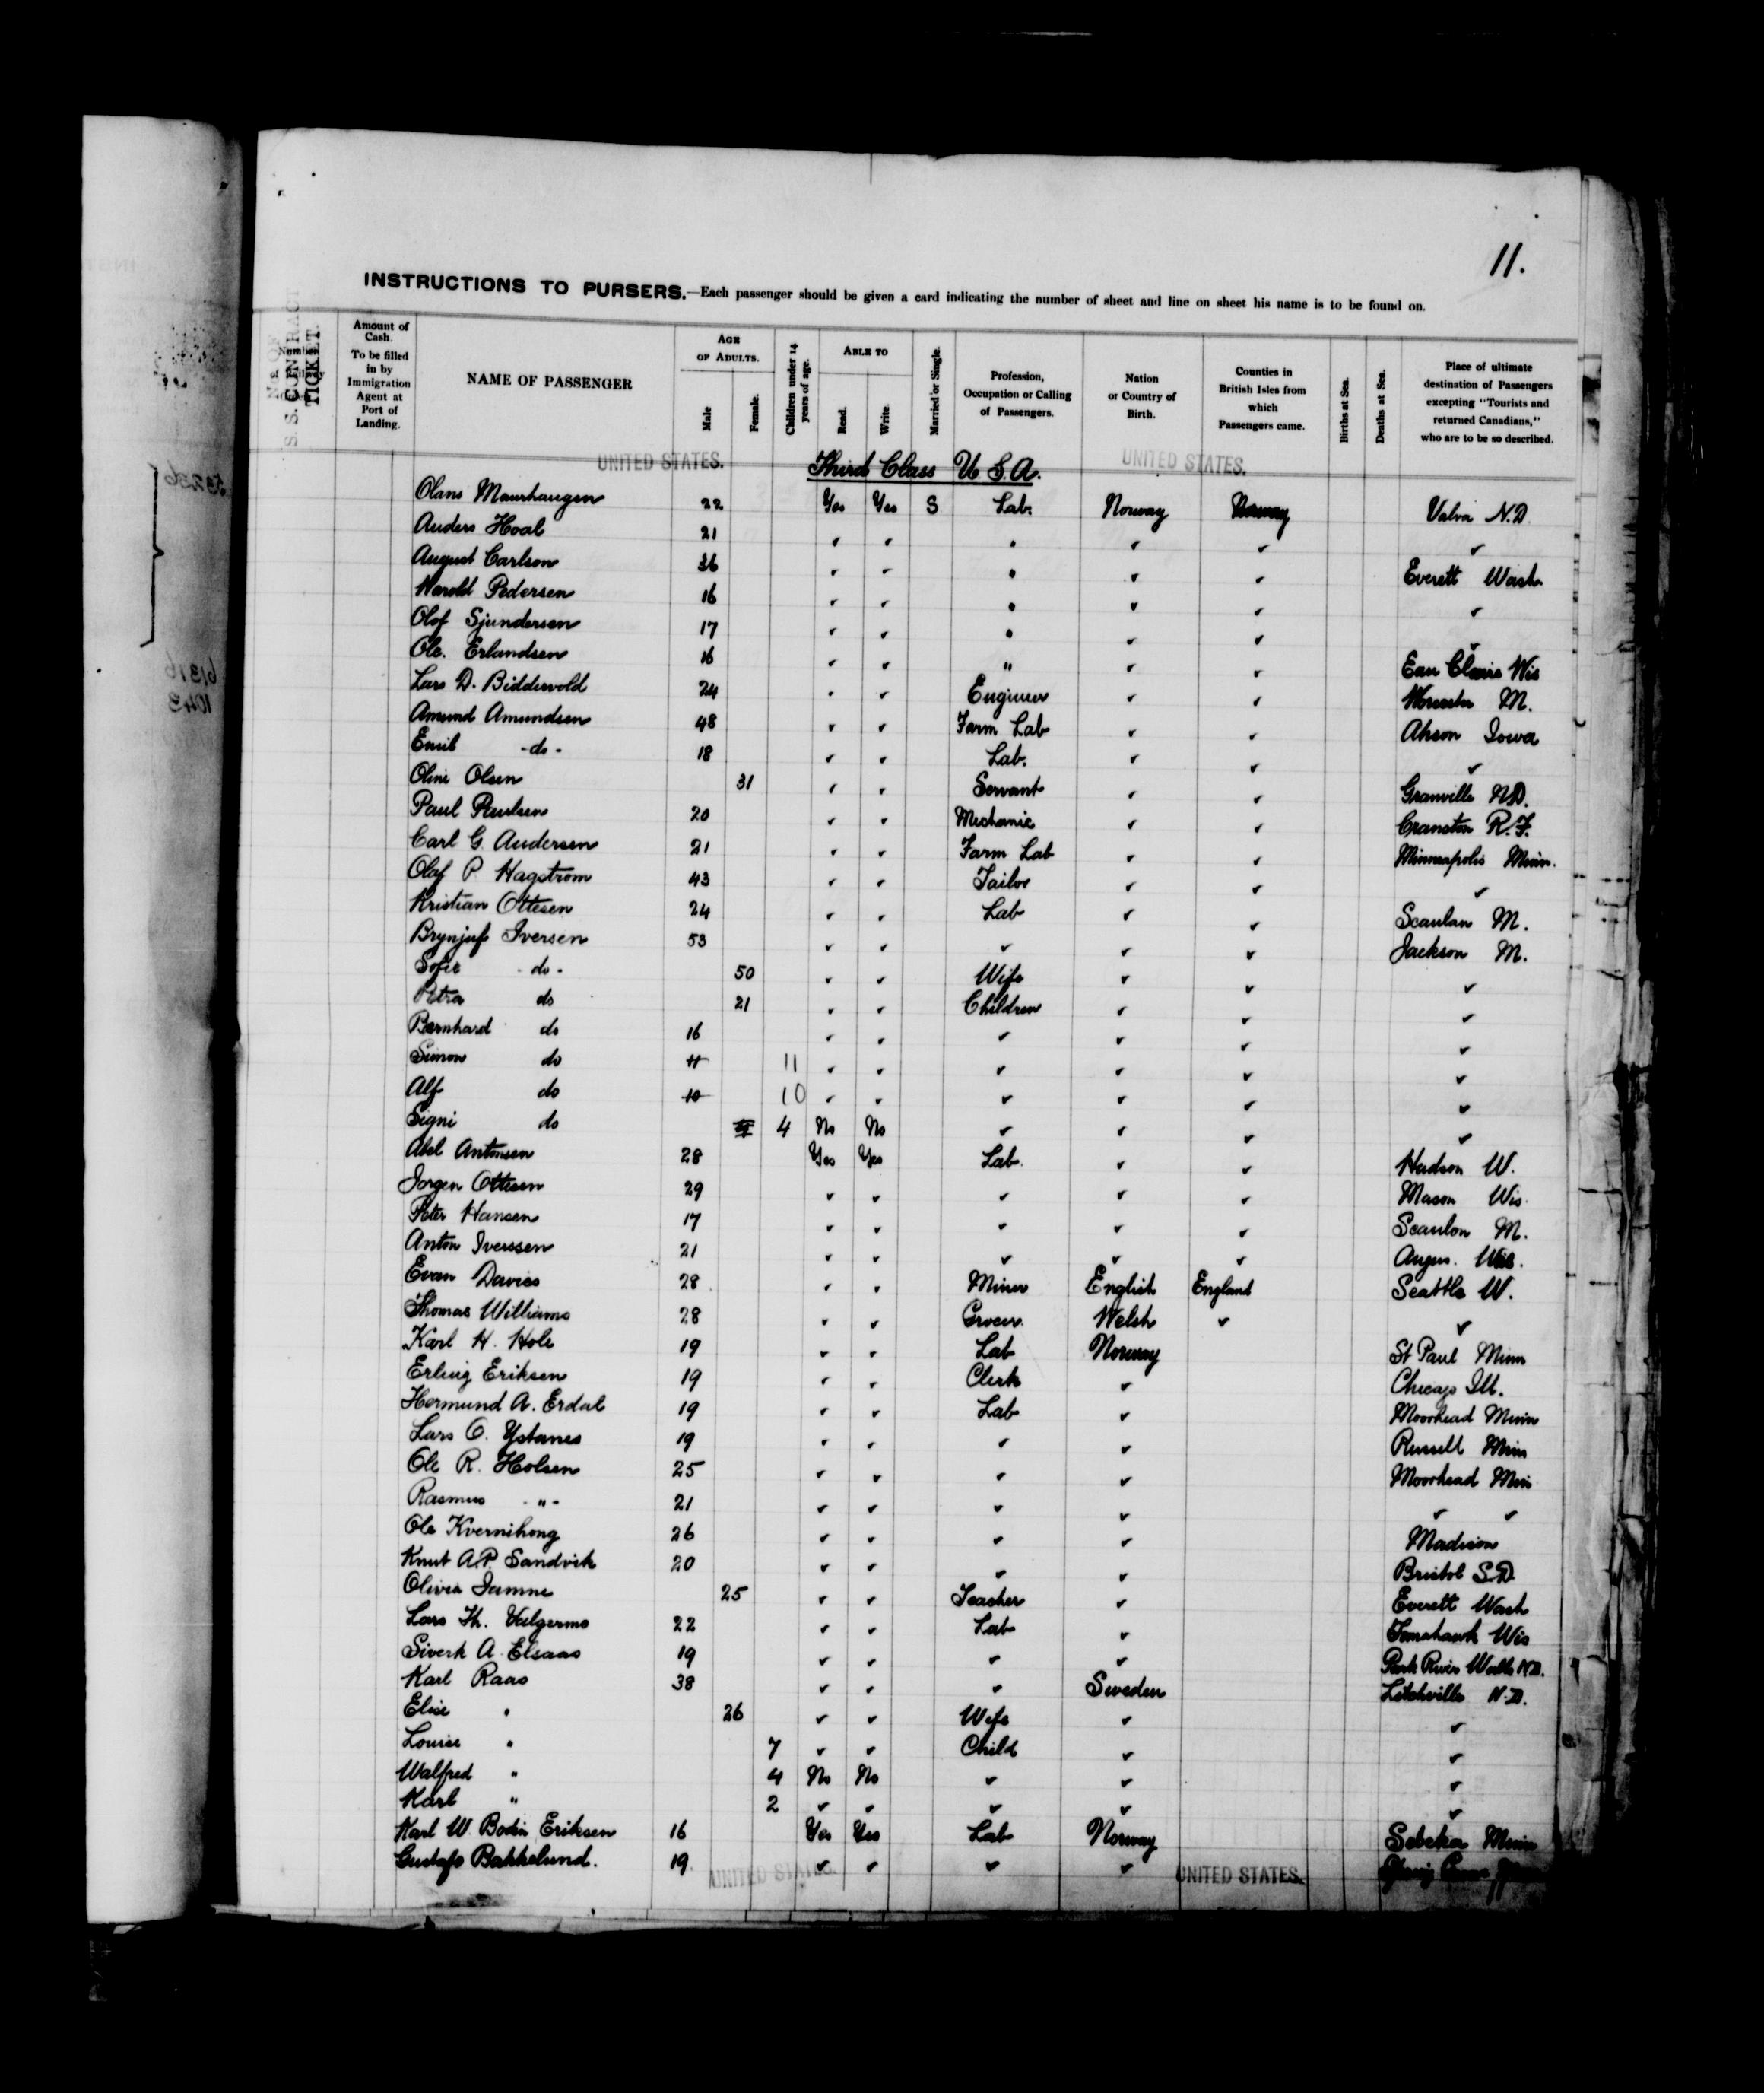 11.
INSTRUCTIONS TO PURSERS.—Each passenger should be given a card indicating the number of sheet and line on sheet his name is to be found on.
S. S. CONTRACT TICKET.
Amount of Cash. To be filled in by Immigration Agent at Port of Landing.
NAME OF PASSENGER
AGE OF ADULTS.
Male
Female.
Children under 14 years of age.
ABLE TO
Read.
Write.
Married or Single.
Profession, Occupation or Calling of Passengers.
Nation or Country of Birth.
Counties in British Isles from which Passengers came.
Births at Sea.
Deaths at Sea.
Place of ultimate destination of Passengers excepting "Tourists and returned Canadians," who are to be so described.
UNITED STATES. Third Class U.S.A. UNITED STATES.
Olans Maurhaugen 22 Yes Yes S Lab. Norway Norway Valva N.D
Anders Hoal 21 ✓ ✓ " ✓ ✓ ✓
August Carlson 36 ✓ ✓ " ✓ ✓ Everett Wash
Harold Pedersen 16 ✓ ✓ " ✓ ✓ ✓
Olof Sjundersen 17 ✓ ✓ " ✓ ✓ ✓
Ole. Erlandsen 16 ✓ ✓ " ✓ ✓ Eau Claire Wis
Lars D. 24 ✓ ✓ Engineer ✓ ✓ Worcester M.
Amund Amundsen 48 ✓ ✓ Farm Lab ✓ ✓ Iowa
Emil -do- 18 ✓ ✓ Lab. ✓ ✓ ✓
Oline Olsen 31 ✓ ✓ Servant ✓ ✓ Granville N.D.
Paul Paulsen 20 ✓ ✓ Mechanic ✓ ✓ Cranston R.I.
Carl G. Andersen 21 ✓ ✓ Farm Lab ✓ ✓ Minneapolis Minn.
Olaf P Hagstrom 43 ✓ ✓ Tailor ✓ ✓ ✓
Kristian Ottesen 24 ✓ ✓ Lab ✓ ✓ Scanlan M.
Brynjulf Iversen 53 ✓ ✓ ✓ ✓ ✓ Jackson M.
Sofie -do- 50 ✓ ✓ Wife ✓ ✓ ✓
Petra do 21 ✓ ✓ Children ✓ ✓ ✓
Bernhard do 16 ✓ ✓ ✓ ✓ ✓ ✓
Simon do 11 11 ✓ ✓ ✓ ✓ ✓ ✓
Alf do 10 10 ✓ ✓ ✓ ✓ ✓ ✓
Signi do 4 No No ✓ ✓ ✓ ✓
Abel Antonsen 28 Yes Yes Lab. ✓ ✓ Hudson W.
Jorgen Ottesen 29 ✓ ✓ ✓ ✓ ✓ Mason Wis.
Peter Hansen 17 ✓ ✓ ✓ ✓ ✓ Scanlon M.
Anton Iverssen 21 ✓ ✓ ✓ ✓ ✓ Angus. Wis.
Evan Davies 28 ✓ ✓ Miner English England Seattle W.
Thomas Williams 28 ✓ ✓ Grocer Welsh ✓ ✓
Karl H. Hole 19 ✓ ✓ Lab Norway St Paul Minn
Erling Eriksen 19 ✓ ✓ Clerk ✓ Chicago Ill.
Hermund A. Erdal 19 ✓ ✓ Lab ✓ Moorhead Minn
Lars O. Ystanes 19 ✓ ✓ ✓ ✓ Russell Minn
Ole R. Holsen 25 ✓ ✓ ✓ ✓ Moorhead Min
Rasmus -"- 21 ✓ ✓ ✓ ✓ ✓ ✓
Ole Kvernihong 26 ✓ ✓ ✓ ✓ Madison
Knut A.P. Sandvik 20 ✓ ✓ ✓ ✓ Bristol S.D.
Olivia Jamne 25 ✓ ✓ Teacher ✓ Everett Wash
Lars Th. 22 ✓ ✓ Lab ✓ Tomahawk Wis
Siverk A. Elsaas 19 ✓ ✓ ✓ ✓ Park River N.D.
Karl Raas 38 ✓ ✓ ✓ Sweden Litchville N.D.
Elise " 26 ✓ ✓ Wife ✓ ✓
Louise " 7 ✓ ✓ Child ✓ ✓
Walfred " 4 No No ✓ ✓ ✓
Karl " 2 ✓ ✓ ✓ ✓ ✓
Karl W. Bodin Eriksen 16 Yes Yes Lab Norway Sebeka Minn
Gustafs Bakkelund. 19. ✓ ✓ ✓ ✓
UNITED STATES. UNITED STATES.